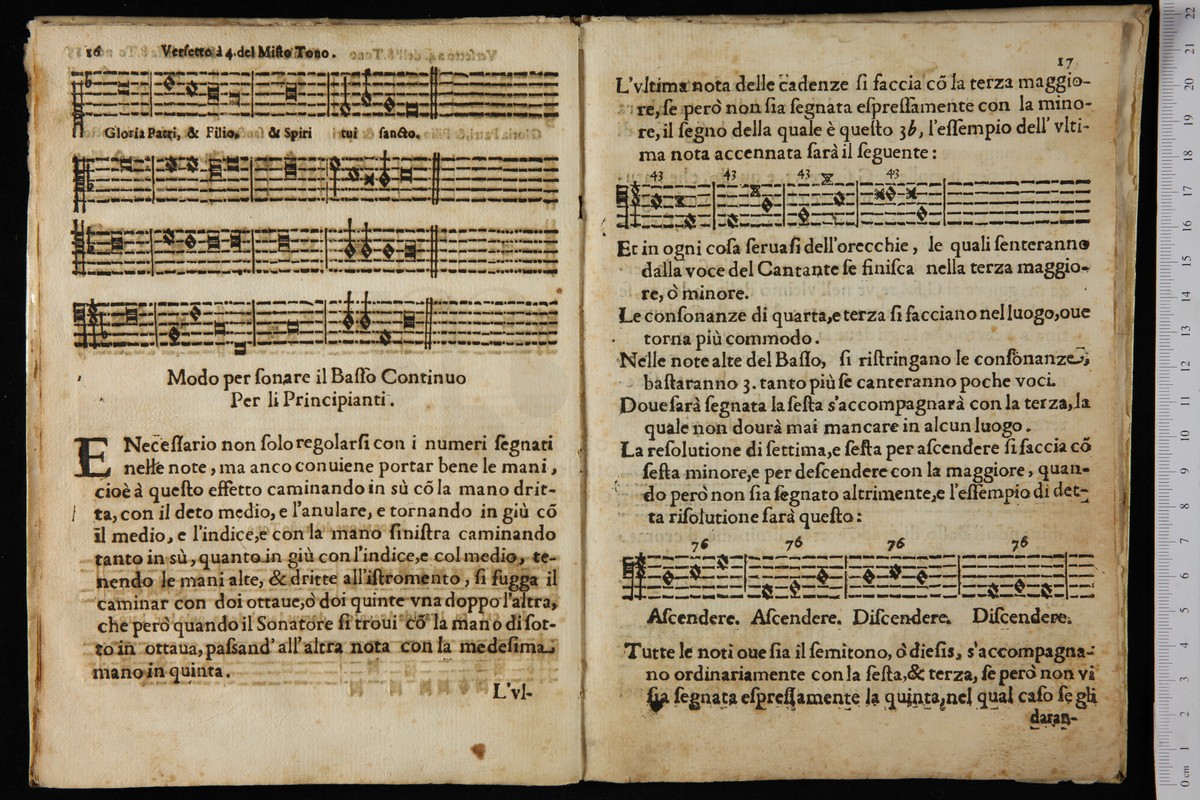 16 Verſetto à 4. del Miſto Tono.
Gloria Patri, & Filio, & Spiri tui ſancto.
Modo per ſonare il Baſſo Continuo
Per li Principianti.
E Neceſſario non ſolo regolarſi con i numeri ſegnati
nelle note, ma anco conuiene portar bene le mani,
cioè à queſto effetto caminando in sù cõ la mano drit-
ta, con il deto medio, e l'anulare, e tornando in giù cõ
il medio, e l'indice, e con la mano ſiniſtra caminando
tanto in sù, quanto in giù con l'indice, e col medio, te-
nendo le mani alte, & dritte all'iſtromento, ſi fugga il
caminar con doi ottaue, ò doi quinte vna doppo l'altra,
che però quando il Sonatore ſi troui cõ la mano di ſot-
to in ottaua, paſsand' all'altra nota con la medeſima
mano in quinta.
L'vl-
17
L'vltima nota delle cadenze ſi faccia cõ la terza maggio-
re, ſe però non ſia ſegnata eſpreſſamente con la mino-
re, il ſegno della quale è queſto 3b, l'eſſempio dell' vlti-
ma nota accennata ſarà il ſeguente:
43 43 43 43
Et in ogni coſa ſeruaſi dell'orecchie, le quali ſenteranno
dalla voce del Cantante ſe finiſca nella terza maggio-
re, ò minore.
Le conſonanze di quarta, e terza ſi facciano nel luogo, oue
torna più commodo.
Nelle note alte del Baſſo, ſi riſtringano le conſonanze,
baſtaranno 3. tanto più ſe canteranno poche voci.
Doue ſarà ſegnata la ſeſta s'accompagnarà con la terza, la
quale non dourà mai mancare in alcun luogo.
La reſolutione di ſettima, e ſeſta per aſcendere ſi faccia cõ
ſeſta minore, e per deſcendere con la maggiore, quan-
do però non ſia ſegnato altrimente, e l'eſſempio di det-
ta riſolutione ſarà queſto:
76 76 76 76
Aſcendere. Aſcendere. Diſcendere. Diſcendere.
Tutte le noti oue ſia il ſemitono, ò dieſis, s'accompagna-
no ordinariamente con la ſeſta, & terza, ſe però non vi
ſia ſegnata eſpreſſamente la quinta, nel qual caſo ſe gli
daran-
22
21
20
19
18
17
16
15
14
13
12
11
10
9
8
7
6
5
4
3
2
1
0 cm